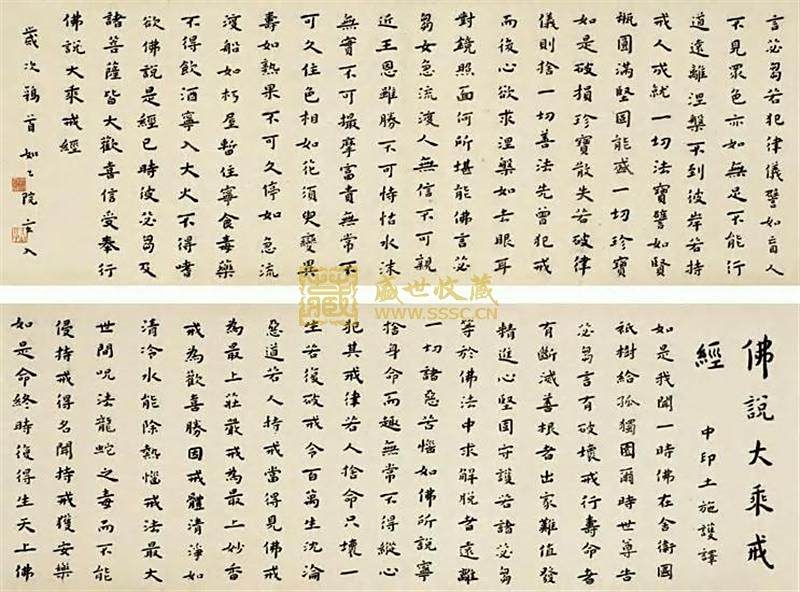 佛說大乘戒
經
中印土施護譯
如是我聞一時佛在舍衛國
祇樹給孤獨園爾時世尊告
苾芻言有破壞戒行壽命者
有斷滅善根者出家難值發
精進心堅固守護若諸苾芻
等於佛法中求解脫者遠離
一切諸惡苦惱如佛所說寧
捨身命而趣無常不得縱心
犯其戒律若人捨命只壞一
生若復破戒令百萬生沈淪
惡道若人持戒當得見佛戒
為最上莊嚴戒為最上妙香
戒為歡喜勝因戒體清淨如
清冷水能除熱惱戒法最大
世間呪法龍蛇之毒而不能
侵持戒得名聞持戒獲安樂
如是命終時復得生天上佛
言苾芻若犯律儀譬如盲人
不見眾色亦如無足不能行
道遠離涅槃不到彼岸若持
戒人成就一切法寶譬如賢
瓶圓滿堅固能盛一切珍寶
如是破損珍寶散失若破律
儀則捨一切善法先曾犯戒
而後心欲求涅槃如去眼耳
對鏡照面何所堪能佛言苾
芻女急流渡人無信不可親
近王恩雖勝不可恃怙水沫
無實不可撮摩富貴無常不
可久住色相如花須臾變異
壽如熟果不可久停如急流
渡船如朽屋暫住寧食毒藥
不得飲酒寧入大火不得嗜
欲佛說是經已時彼苾芻及
諸菩薩皆大歡喜信受奉行
佛說大乘戒經
歲次鶉首如院入
盛世收藏
WWW.SSSC.CN